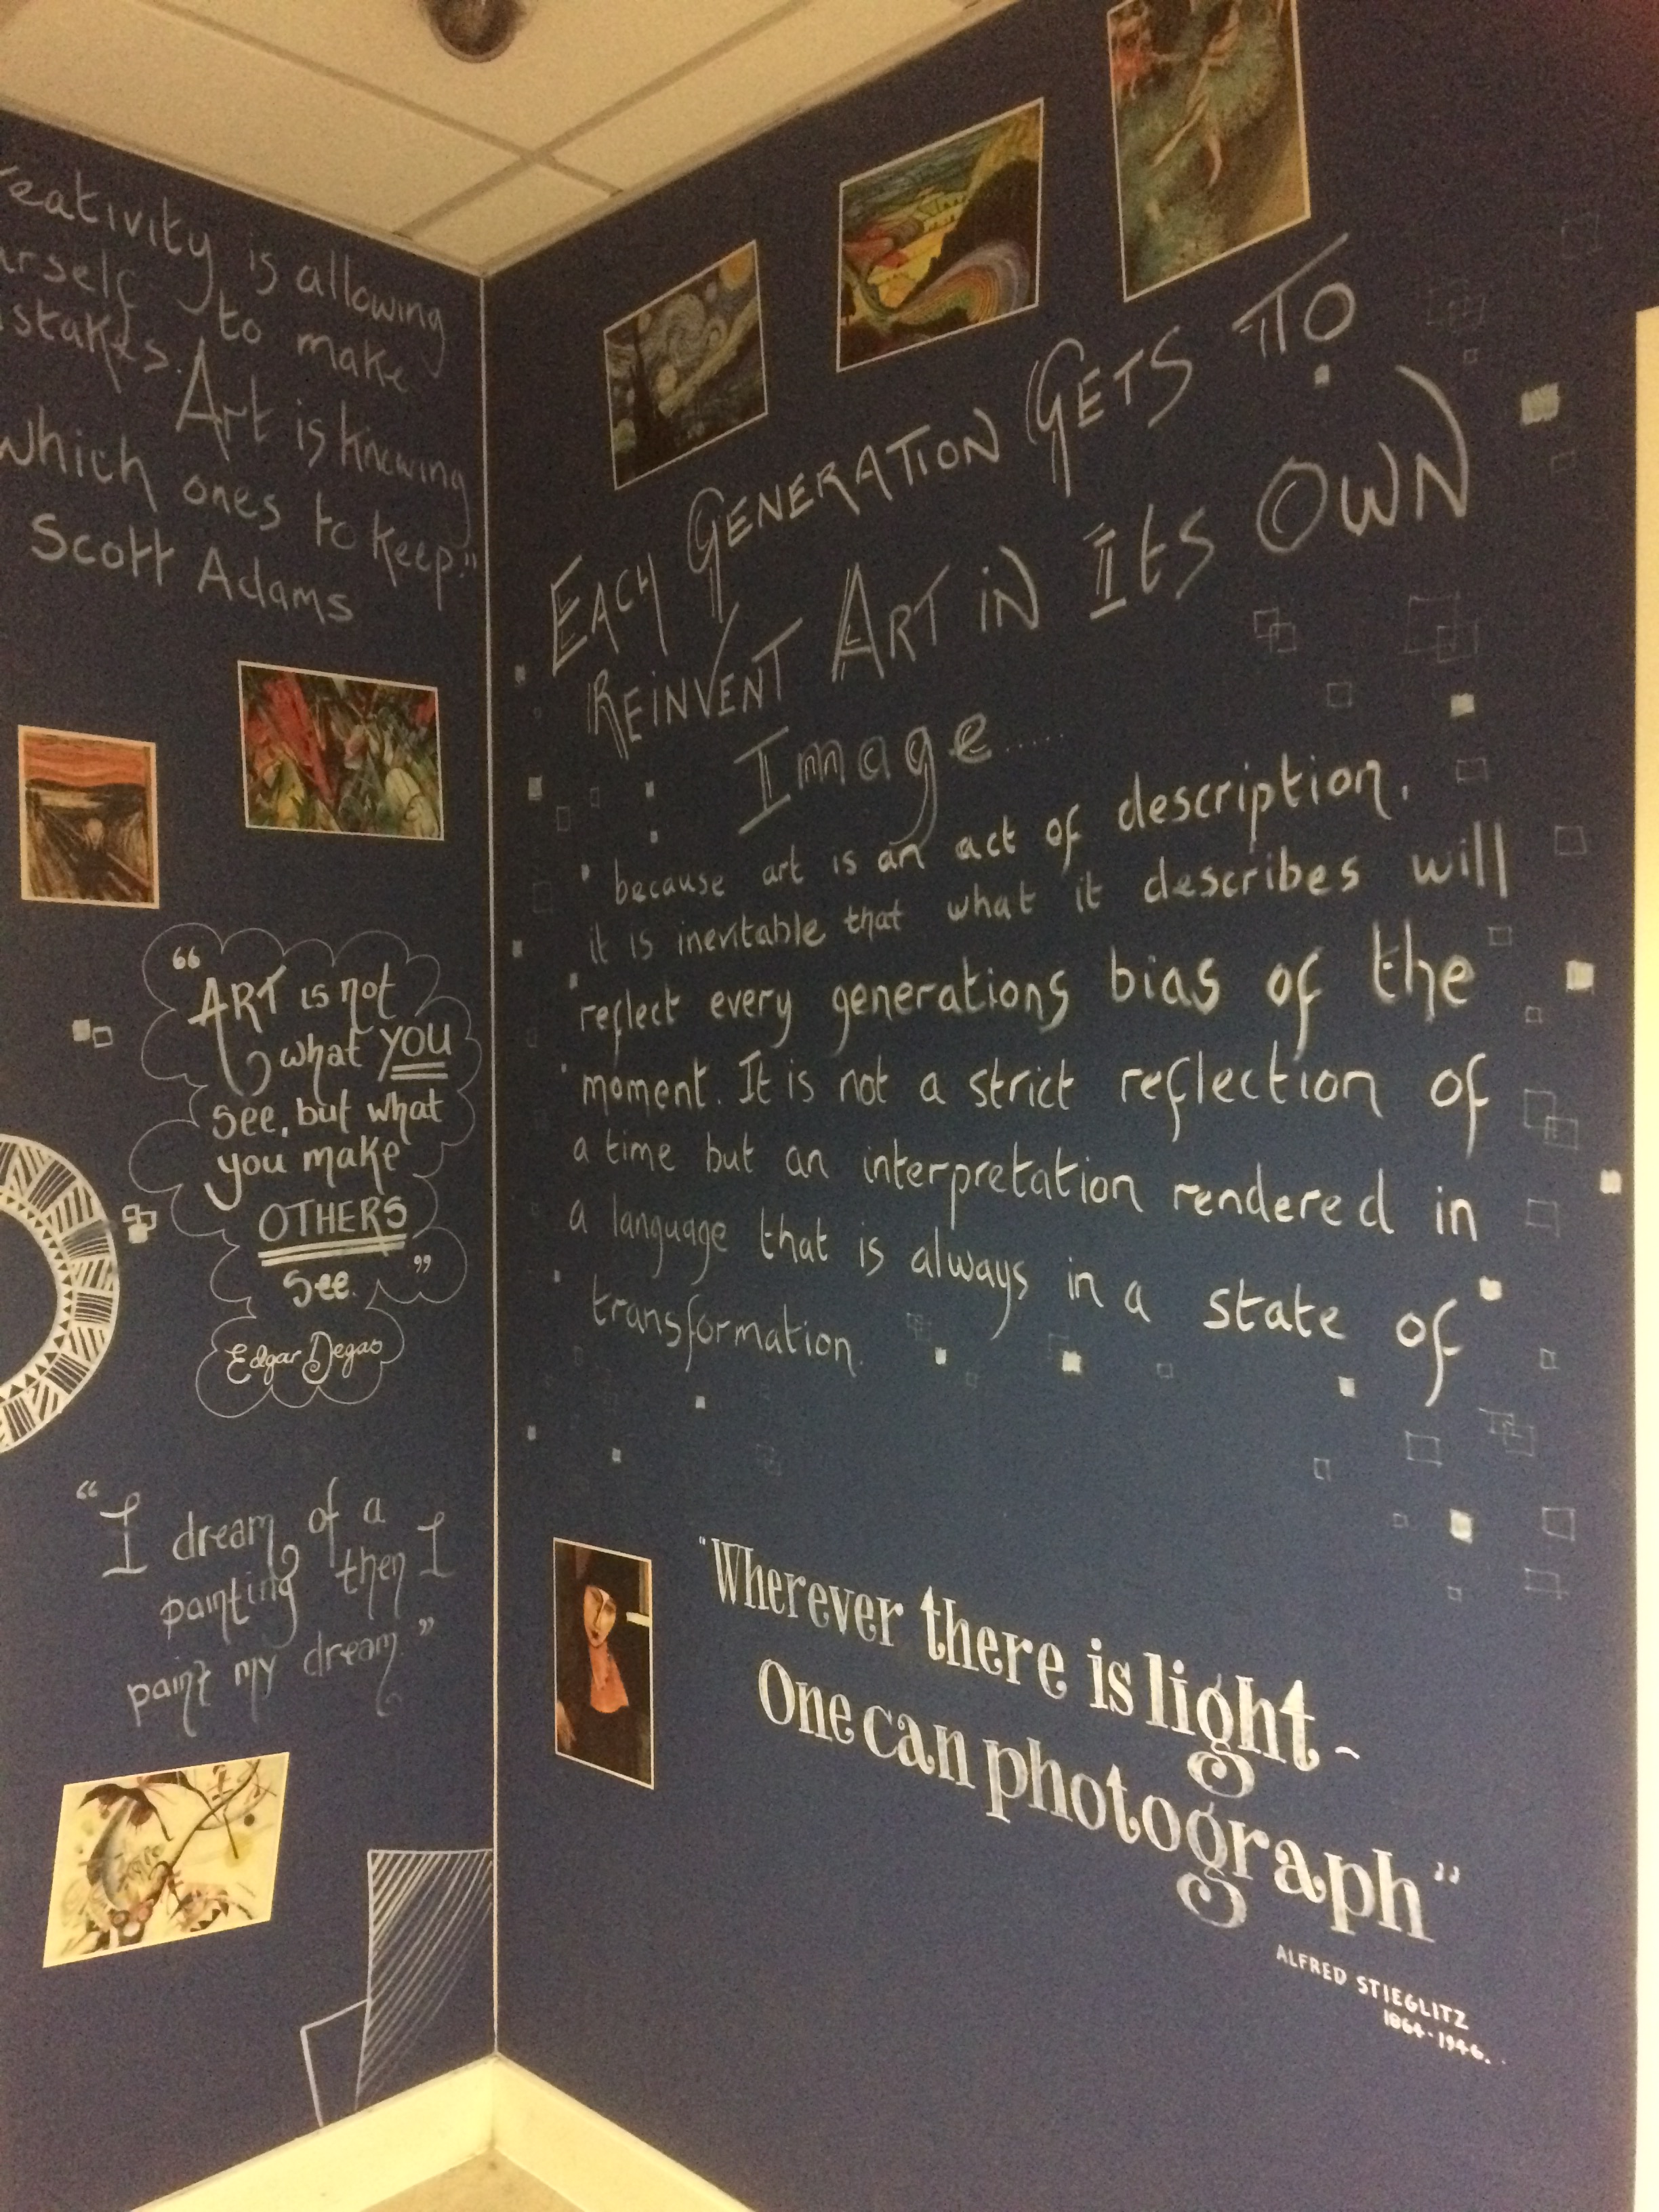 reativity is allowing
urself to make
istakes. Art is knowing
which ones to keep."
Scott Adams
"ART is not
what YOU
see, but what
you make
OTHERS
see."
Edgar Degas
"I dream of a
painting then I
paint my dream."
EACH GENERATION GETS TO
REINVENT ART IN ITS OWN
Image......
because art is an act of description,
it is inevitable that what it describes will
reflect every generations bias of the
moment. It is not a strict reflection of
a time but an interpretation rendered in
a language that is always in a state of
transformation.
"Wherever there is light ~
One can photograph"
ALFRED STIEGLITZ
1864-1946.